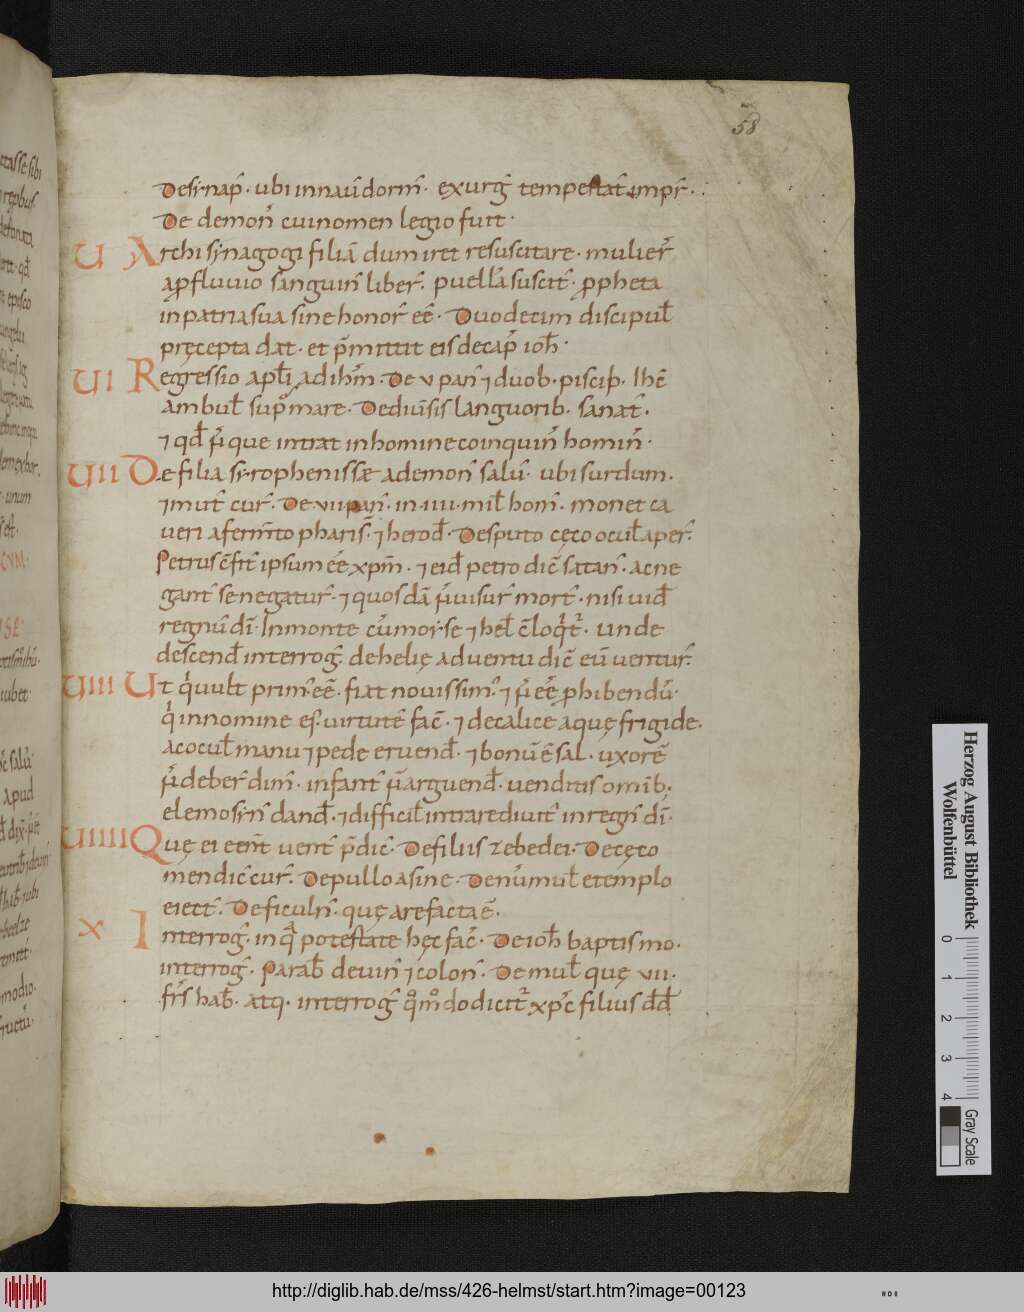 58
De sinap̄. ubi in navi dorm̄. exurḡ tempestat̄ imp̄r.
De demon̄ cui nomen legio fuit.
U Archi synagogi filiā dum iret resuscitare. mulier̄
a p̄fluvio sanguin̄ liber̄. puellā suscit̄. p̄pheta
in patria sua sine honor̄ eē. Duodecim discipul̄
pręcepta dat. et p̄mittit eis decap̄ ioh̄.
UI Regressio apl̄i, ad ih̄m. De v pan̄ ⁊ duob. piscib̄. Ihē
ambul̄ sup̄ mare. De diūsis languorib. sanat̄.
⁊ qđ n̄ que intrat in homine coinquin̄ homin̄.
UII De filia syrophenissæ a demon̄ salū. ubi surdum.
⁊ mut̄ cur̄. De vii pan̄. in .iiii. mil̄ hom̄. monet ca
veri a ferm̄to pharis̄. ⁊ herod̄. De sputo cęco ocul̄ aper̄.
Petrus c̄fit̄ ipsum eē xpm̄. ⁊ eid̄ petro dic̄ satan̄. ac ne
gant̄ se negatur̄. ⁊ quosdā n̄ visur̄ mort̄. nisi vid̄
regnū dī. In monte cū moyse ⁊ hel̄ c̄loqit̄. Unde
descend̄ interroḡ. de helię adventu dic̄ eū ventur̄.
UIII Ut qi vult prim̄ eē. fiat novissim̄. ⁊ n̄ eē phibendū.
qi in nomine eī. virtutē fac̄. ⁊ de calice aquę frigide.
ac ocul̄ manu ⁊ pede eruend̄. ⁊ bonū ē sal. uxorē
n̄ deber̄ dim̄. infant̄ n̄ arguend̄. venditis omīb.
elemosin̄ dand̄. ⁊ difficil̄ intrare divit̄ in regn̄ dī.
UIIII Quę ei eēnt vent̄ p̄dic̄. De filiis zebedei. De cęco
mendic̄ cur̄. De pullo asine. De nūmul̄ e templo
eiect̄. De ficuln̄. quę arefacta ē.
X Interroḡ. in qa potestate hęc fac̄. De ioh̄ baptismo.
interroḡ. Parab̄ de vin̄ ⁊ colon̄. De mul̄ quę vii.
frs̄ hab̄. atq. interroḡ qomo dicit̄ xpc̄ filius d̄d̄
Herzog August Bibliothek
Wolfenbüttel
0 1 2 3 4
Gray Scale
http://diglib.hab.de/mss/426-helmst/start.htm?image=00123